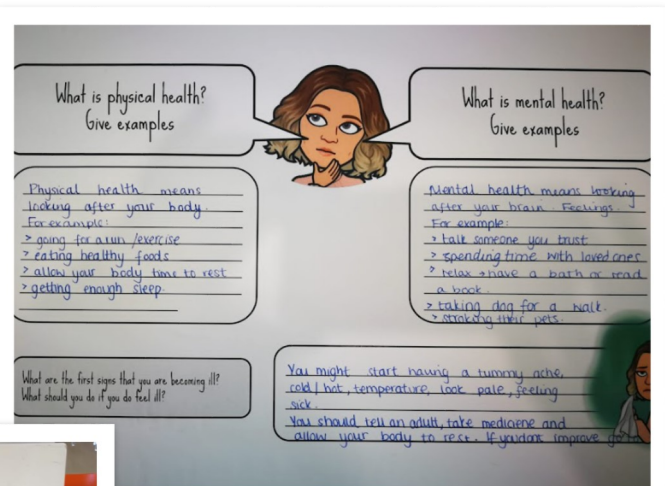 What is physical health?
Give examples
What is mental health?
Give examples
Physical health means
looking after your body.
For example:
> going for a run /exercise
> eating healthy foods
> allow your body time to rest
> getting enough sleep.
Mental health means looking
after your brain. Feelings.
For example:
> talk someone you trust
> spending time with loved ones
> relax → have a bath or read
a book.
> taking dog for a walk.
> stroking their pets.
What are the first signs that you are becoming ill?
What should you do if you do feel ill?
You might start having a tummy ache,
cold/hot, temperature, look pale, feeling
sick.
You should tell an adult, take medicene and
allow your body to rest. If you dont improve go